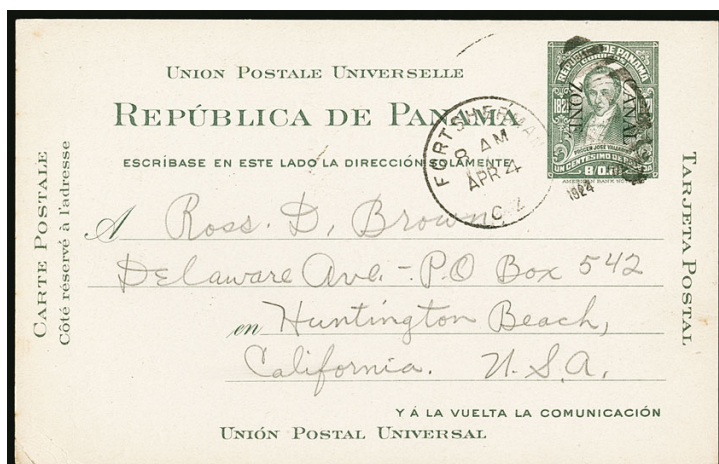 UNION POSTALE UNIVERSELLE
REPÚBLICA DE PANAMA
ESCRÍBASE EN ESTE LADO LA DIRECCIÓN SOLAMENTE
CARTE POSTALE
Côté réservé à l'adresse
TARJETA POSTAL
REPUBLICA DE PANAMA
CORREOS
CANAL
ZONE
UN CENTESIMO DE BALBOA
B/0.01
FORT SHERMAN
8 AM
APR 24
C Z
A Ross. D. Brown,
Delaware Ave. - P.O Box 542
en Huntington Beach,
California. U.S.A.
Y Á LA VUELTA LA COMUNICACIÓN
UNIÓN POSTAL UNIVERSAL